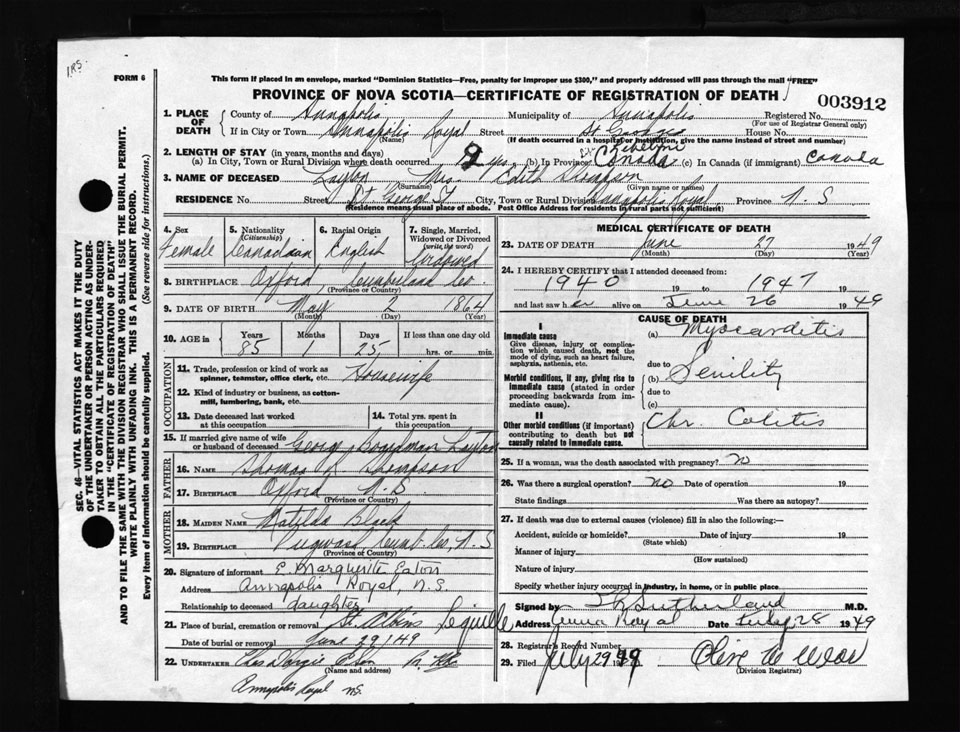 I.R.S.
FORM 6
This form if placed in an envelope, marked "Dominion Statistics—Free, penalty for improper use $300," and properly addressed will pass through the mail "FREE"
PROVINCE OF NOVA SCOTIA—CERTIFICATE OF REGISTRATION OF DEATH
003912
SEC. 46—VITAL STATISTICS ACT MAKES IT THE DUTY
OF THE UNDERTAKER OR PERSON ACTING AS UNDER-
TAKER TO OBTAIN ALL THE PARTICULARS REQUIRED
IN THE "CERTIFICATE OF REGISTRATION OF DEATH"
AND TO FILE THE SAME WITH THE DIVISION REGISTRAR WHO SHALL ISSUE THE BURIAL PERMIT.
WRITE PLAINLY WITH UNFADING INK. THIS IS A PERMANENT RECORD.
Every item of information should be carefully supplied. (See reverse side for instructions.)
1. PLACE OF DEATH
County of Annapolis Municipality of Annapolis Registered No.
(For use of Registrar General only)
If in City or Town Annapolis Royal Street St Georges House No.
(If death occurred in a hospital or institution, give the name instead of street and number)
2. LENGTH OF STAY (in years, months and days)
(a) In City, Town or Rural Division where death occurred 9 yrs. (b) In Province Canada (c) In Canada (if immigrant) Canada
3. NAME OF DECEASED Layton Mrs. Edith Thompson
(Surname) (Given name or names)
RESIDENCE No. Street St. George St City, Town or Rural Division Annapolis Royal Province N. S
(Residence means usual place of abode. Post Office Address for residents in rural parts not sufficient)
4. Sex Female
5. Nationality (Citizenship) Canadian
6. Racial Origin English
7. Single, Married, Widowed or Divorced (write the word) Widowed
8. BIRTHPLACE Oxford Cumberland Co.
(Province or Country)
9. DATE OF BIRTH May 2 1864
(Month) (Day) (Year)
10. AGE in Years Months Days If less than one day old
85 1 25 hrs. or min.
OCCUPATION
11. Trade, profession or kind of work as spinner, teamster, office clerk, etc. Housewife
12. Kind of industry or business, as cotton-mill, lumbering, bank, etc.
13. Date deceased last worked at this occupation
14. Total yrs. spent in this occupation
15. If married give name of wife or husband of deceased George Layton
FATHER
16. NAME Thomas Thompson
17. BIRTHPLACE Oxford N. S.
MOTHER
18. MAIDEN NAME Matilda Black
19. BIRTHPLACE Pugwash Cumb. Co, N. S
(Province or Country)
20. Signature of informant E. Marguerite Eaton
Address Annapolis Royal, N.S.
Relationship to deceased daughter
21. Place of burial, cremation or removal St. Albins Lequille
Date of burial or removal June 29/49
22. UNDERTAKER Chas Dargie & Son
(Name and address)
Annapolis Royal N.S.
MEDICAL CERTIFICATE OF DEATH
23. DATE OF DEATH June 27 1949
(Month) (Day) (Year)
24. I HEREBY CERTIFY that I attended deceased from:
1940 19 to 1947 19
and last saw her alive on June 26 1949
CAUSE OF DEATH
I
Immediate cause
Give disease, injury or complication which caused death, not the mode of dying, such as heart failure, asphyxia, asthenia, etc.
(a) Myocarditis
due to
Morbid conditions, if any, giving rise to immediate cause (stated in order proceeding backwards from immediate cause).
(b) Senility
due to
(c)
II
Other morbid conditions (if important) contributing to death but not causally related to immediate cause.
Chr. Colitis
25. If a woman, was the death associated with pregnancy? NO
26. Was there a surgical operation? NO Date of operation 19
State findings Was there an autopsy?
27. If death was due to external causes (violence) fill in also the following:—
Accident, suicide or homicide? Date of injury 19
(State which)
Manner of injury
(How sustained)
Nature of injury
Specify whether injury occurred in industry, in home, or in public place
Signed by Sutherland M.D.
Address Anna Royal Date July 28 1949
28. Registrar's Record Number
29. Filed July 29 1949
(Division Registrar)